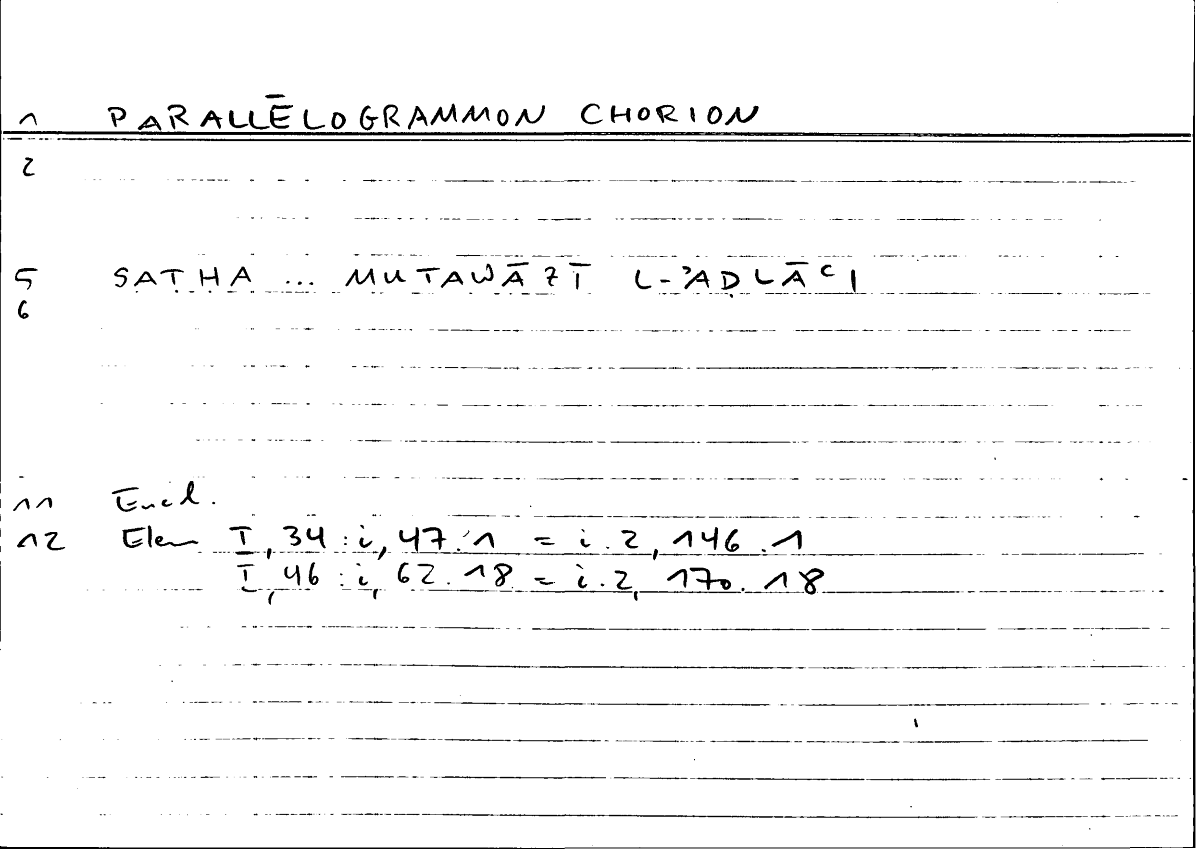 1 PARALLĒLOGRAMMON CHORION
2
5 SATHA ... MUTAWĀZĪ L-ʾAḌLĀʿI
6
11 Eucl.
12 Elem I,34 : i, 47.1 = i.2, 146.1
I,46 : i, 62.18 = i.2, 170.18